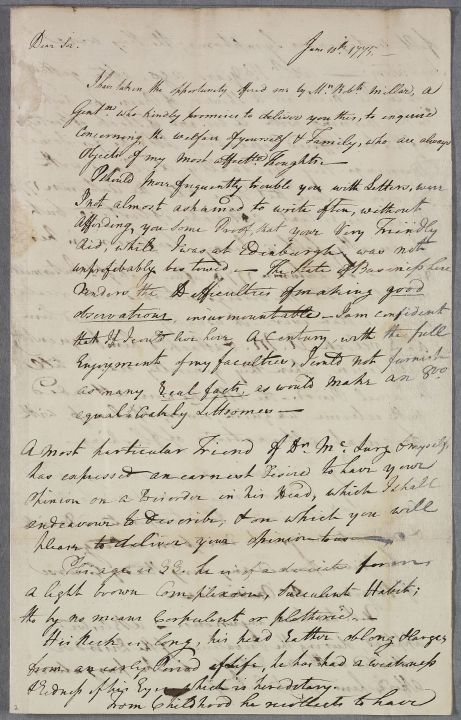 Dear Sir.
June 10th 1775.
I have taken the opportunity offered me by Mr Robt. Millar, a
Gentn. who kindly promises to deliver you this, to enquire
concerning the welfare of yourself & Family, who are always
Objects of my most affectte. Thoughts —
I should more frequently trouble you with Letters, were
I not almost ashamed to write often, without
affording you some Proof, that your Very Friendly
Aid, while I was at Edinburgh, was not
unprofitably bestowed — The State of Business here
renders the Difficulties of making good
observations, insurmountable — I am confident
that If I could live here A Century, with the full
Enjoyment of my faculties, I could not furnish
as many Real facts, as would make an 8vo
equal to Coakely Lettsomes —
A most particular Friend of Dr. Mc. Lurg & myself,
has expressed an earnest Desire to have your
opinion on a Disorder in his Head, which I shall
endeavour to describe, & on which you will
please to deliver your opinion to us —
His age is 23. he is of a
a light brown Complexion, Succulent Habit;
tho by no means Corpulent or plethoric —
His Neck is long, his head Rather oblong & large;
from an early Period of Life, he has had a weakness
& Redness of his Eyes which is hereditary.
From Childhood he recollects to have
2